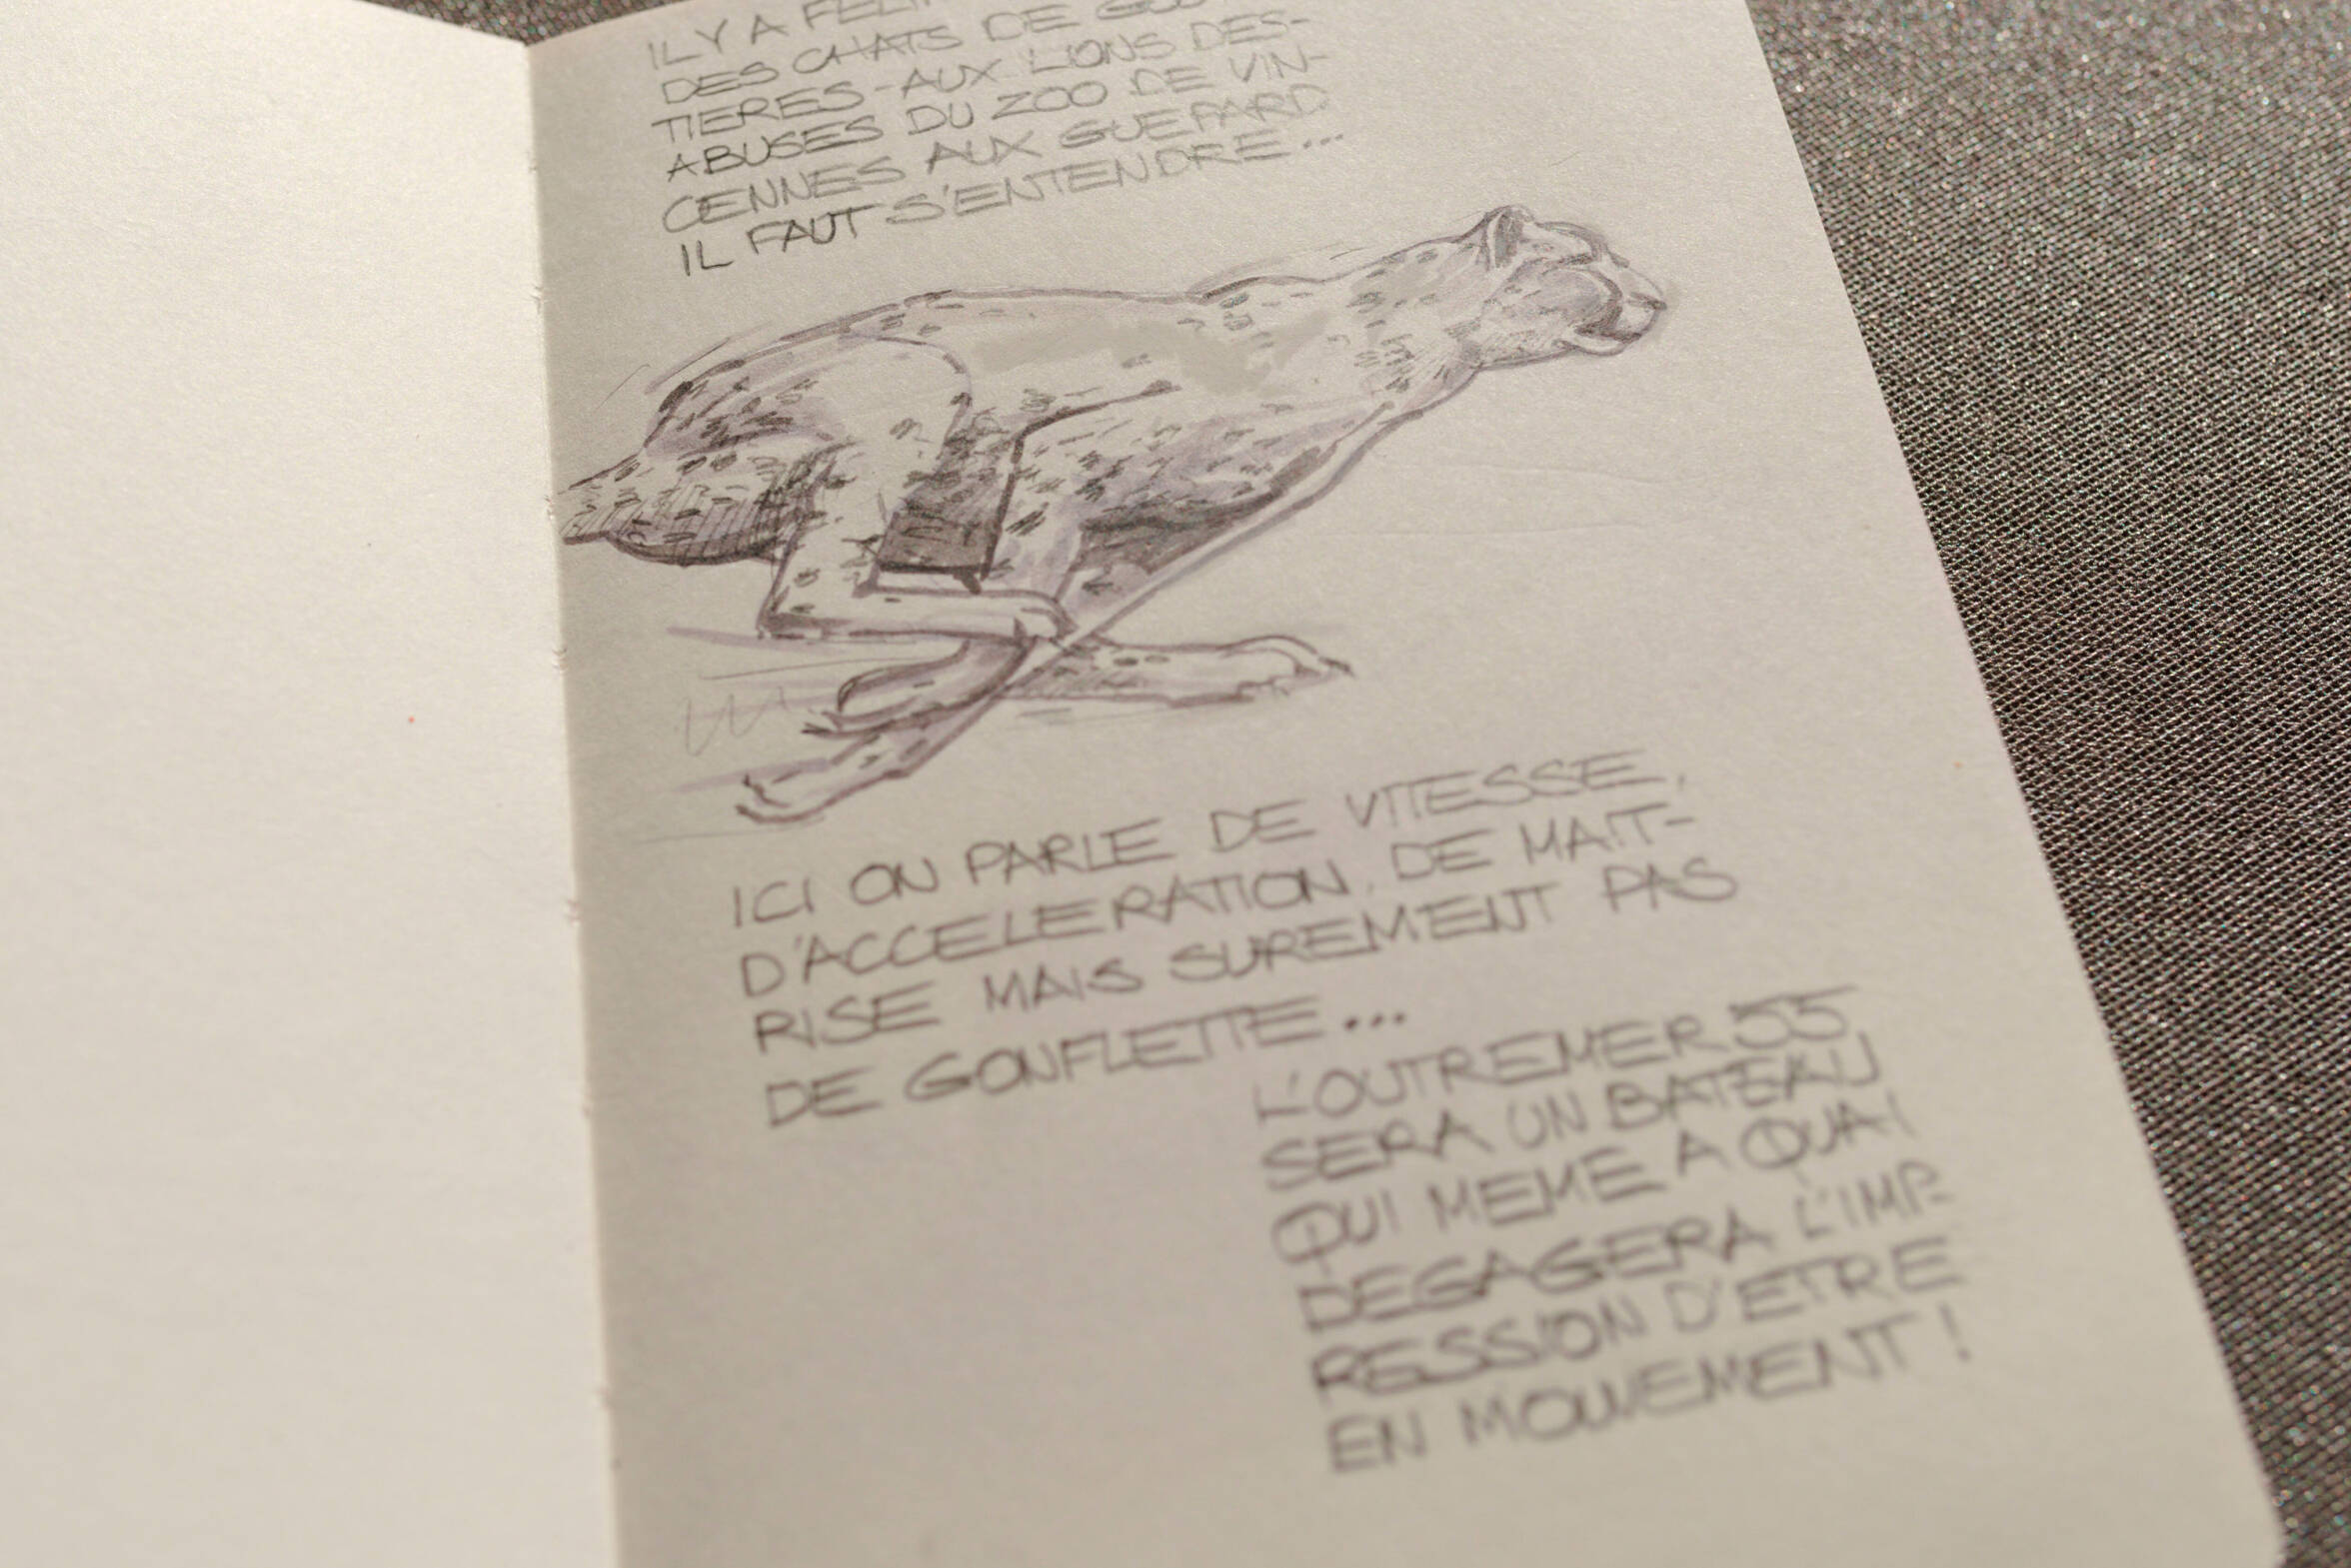 IL Y A FELIN
DES CHATS DE GOUT-
TIERES - AUX LIONS DES-
ABUSES DU ZOO DE VIN-
CENNES AUX GUEPARD
IL FAUT S'ENTENDRE...
ICI ON PARLE DE VITESSE,
D'ACCELERATION, DE MAIT-
RISE MAIS SUREMENT PAS
DE GONFLETTE...
L'OUTREMER 55
SERA UN BATEAU
QUI MEME A QUAI
DEGAGERA L'IMP-
RESSION D'ETRE
EN MOUVEMENT !